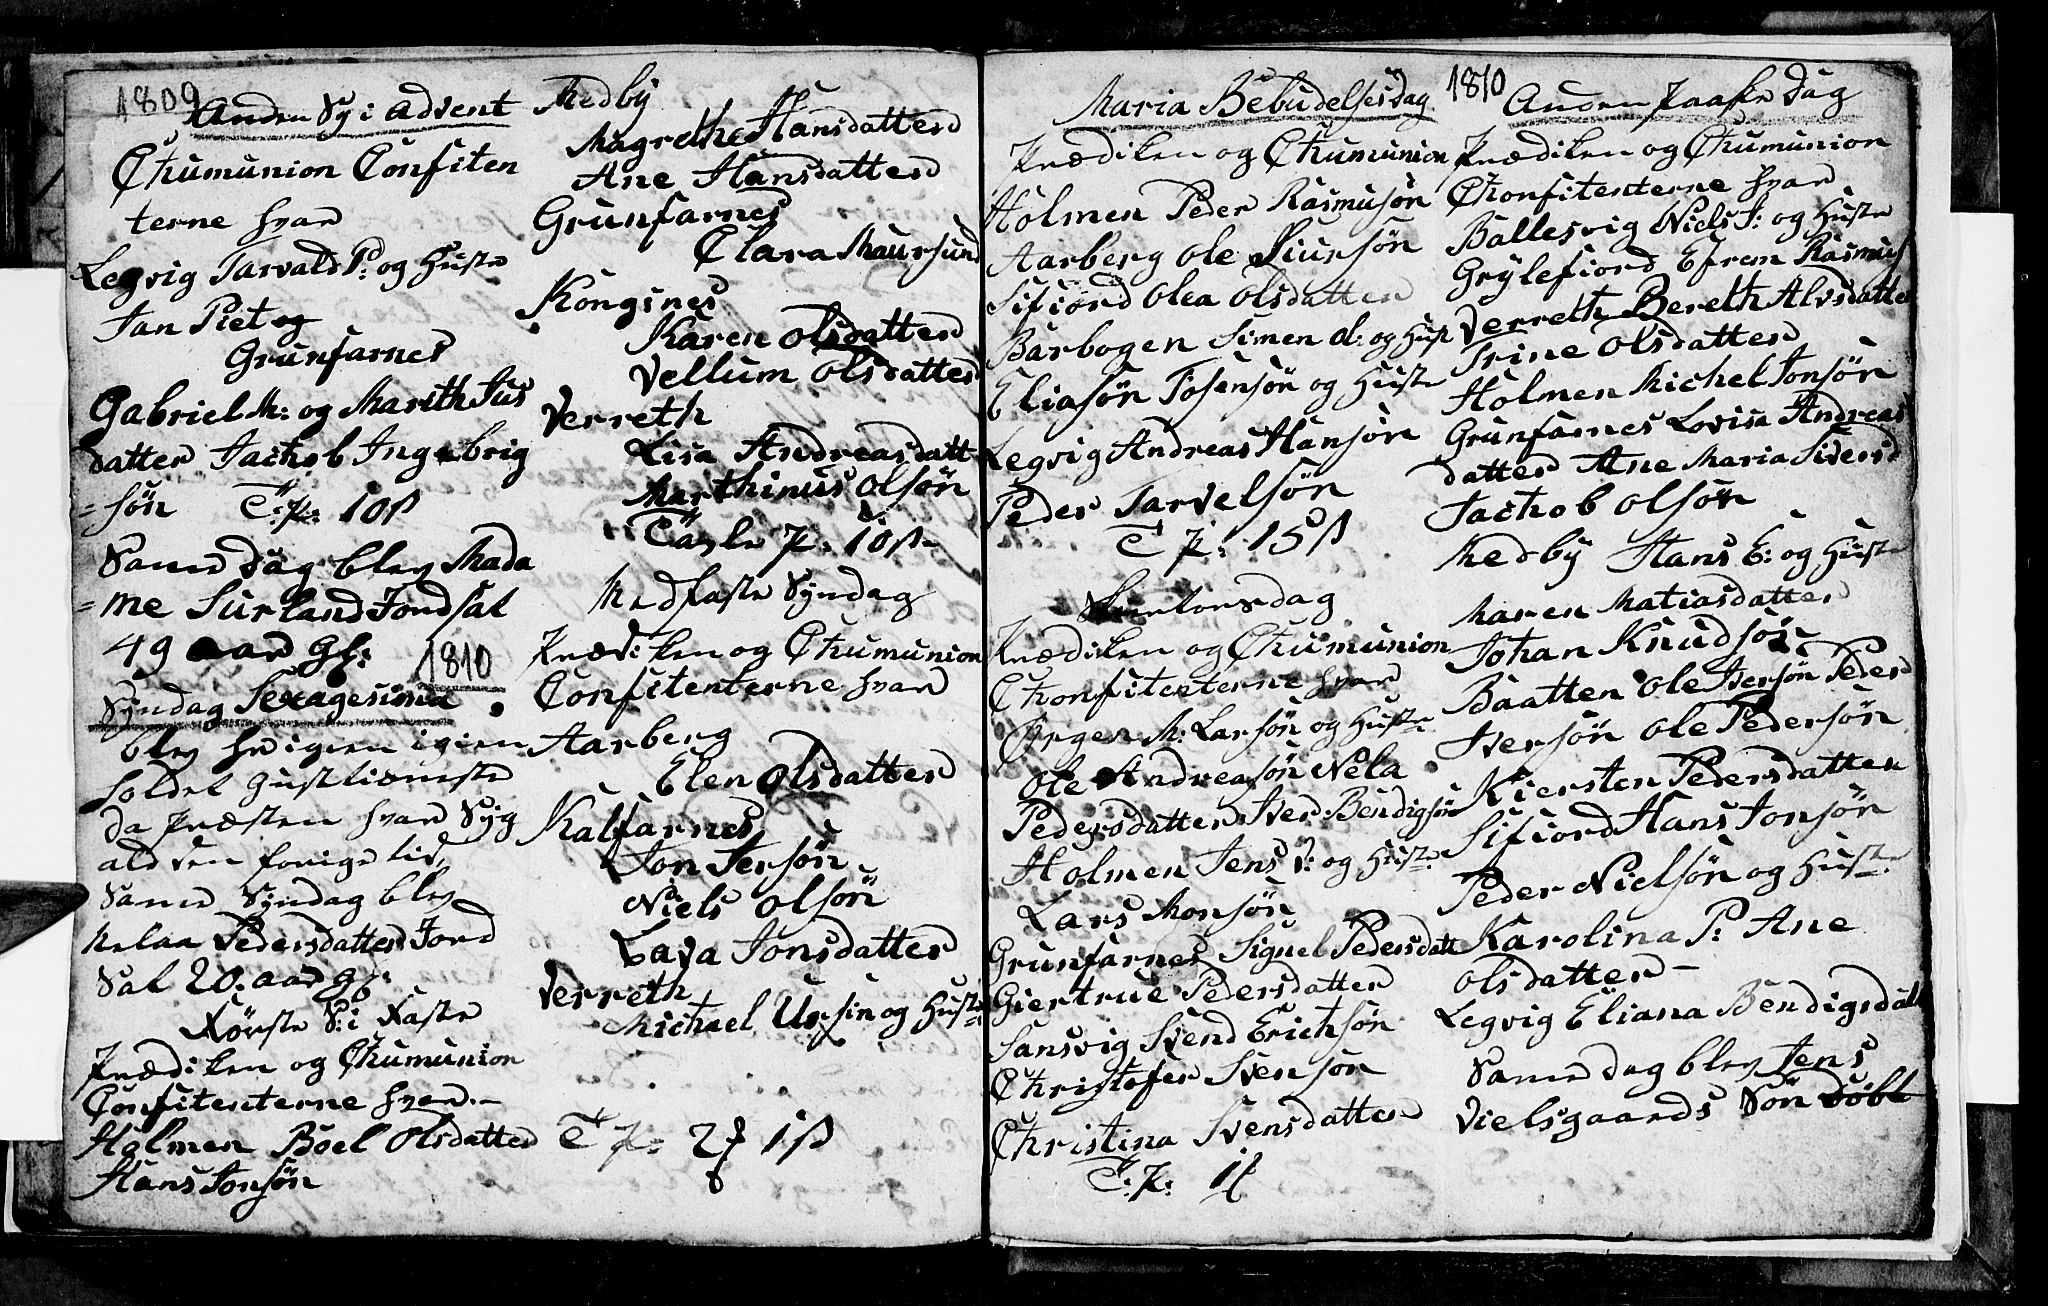 1809
Anden Sy i Advent
Chumunion Confiten
terne hvar
Legvig Tarvald P: og Hustr
Jan Piet og
Grunfarnes
Gabriel M: og Marith Jus
datter Jachob Ingebrig
=søn T: p: 10 ß
Same dag blev Mada
=me Surland Jordsat
49 aar gl:
1810
Syndag Sexagesima
blev hr igien igien
holdet gustieneste
da Præsten hvar Syg
ald den forige tid,
Same Syndag blev
Melaa Pedersdatter Jord
Sat 20. aar gl:
Første S: i Faste
Prædiken og Chumunion
Confitenterne hvar.
Holmen Boel Olsdatter
Hans Jonsøn
Medby
Magrethe Hansdatter
Ane Hansdatter
Grunfarnes
Clara Maursund
Kongsnes
Karen Olsdatter
Vellum Olsdatter
Verreth
Lisa Andreasdatt
Marthinus Olsøn
Tavle p: 10 ß
Medfaste Syndag
Prædiken og Chumunion
Confitenterne hvar
Aarberg
Elen Olsdatter
Kalfarnes
Jon Iersøn
Niels Olsøn
Lava Jonsdatter
Verreth
Michael Ursin og Hustr
T p: 2 1 ß
Maria Bebudelsesdag
Prædiken og Chumunion
Holmen Peder Rasmusøn
Aarberg Ole Siursøn
Sifiord Olea Olsdatter
Barbogen Simen Ol: og Hust
Eliasøn Tosensøn og Hustr
Legvig Andreas Hansøn
Peder Tarvelsøn
T p: 15 ß
Skiertorsdag
Prædiken og Chumunion
Chonfitenterne hvar
Ørgen M: Larsøn og Hustr
Ole Andreasøn Nela
Pedersdatter Iver Bendigsøn
Holmen Jens P: og Hustr
Lars Monsøn
Grunfarnes Signel Pedersdatt
Giertrue Pedersdatter
Sansvig Svend Erichsøn
Christofer Svensøn
Christina Svensdatter
T: p: 1
1810
Anden Paaske Dag
Prædiken og Chumunion
Chonfitenterne hvar
Ballesvig Niels J: og Hustr
Grylefiord Efrem Rasmus
Verreth Bereth Alvsdatter
Trine Olsdatter
Holmen Michel Jonsøn
Grunfarnes Lovisa Andreas
datter Ane Maria Siversd
Jachob Olsøn
Medby Hans E: og Hustr
Maren Matiasdatter
Johan Knudsøn
Baatten Ole Iversøn Peder
Iversøn Ole Pedersøn
Kiersten Pedersdatter
Sifiord Hans Jonsøn
Peder Nielsøn og Hustr
Karolina P: Ane
Olsdatter
Legvig Eliana Bendigsdatt
Same dag blev Jens
Vielsgaards Søn Døbt